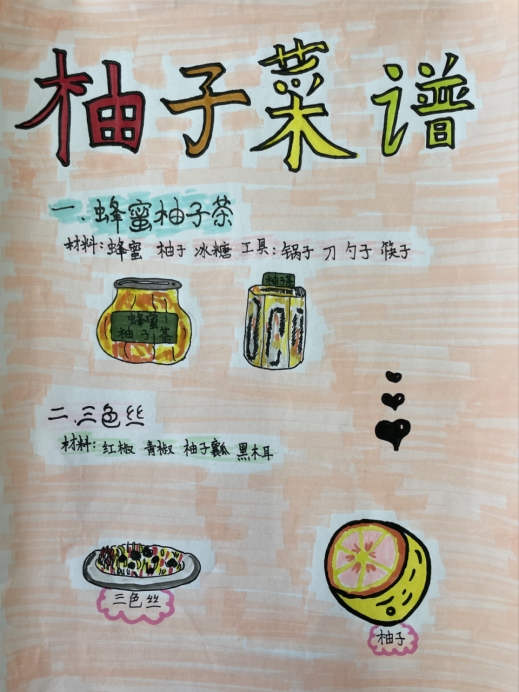 柚子菜谱
一、蜂蜜柚子茶
材料:蜂蜜 柚子 冰糖 工具:锅子 刀 勺子 筷子
蜂蜜
柚子茶
柚子茶
二、三色丝
材料:红椒 青椒 柚子瓤 黑木耳
三色丝
柚子